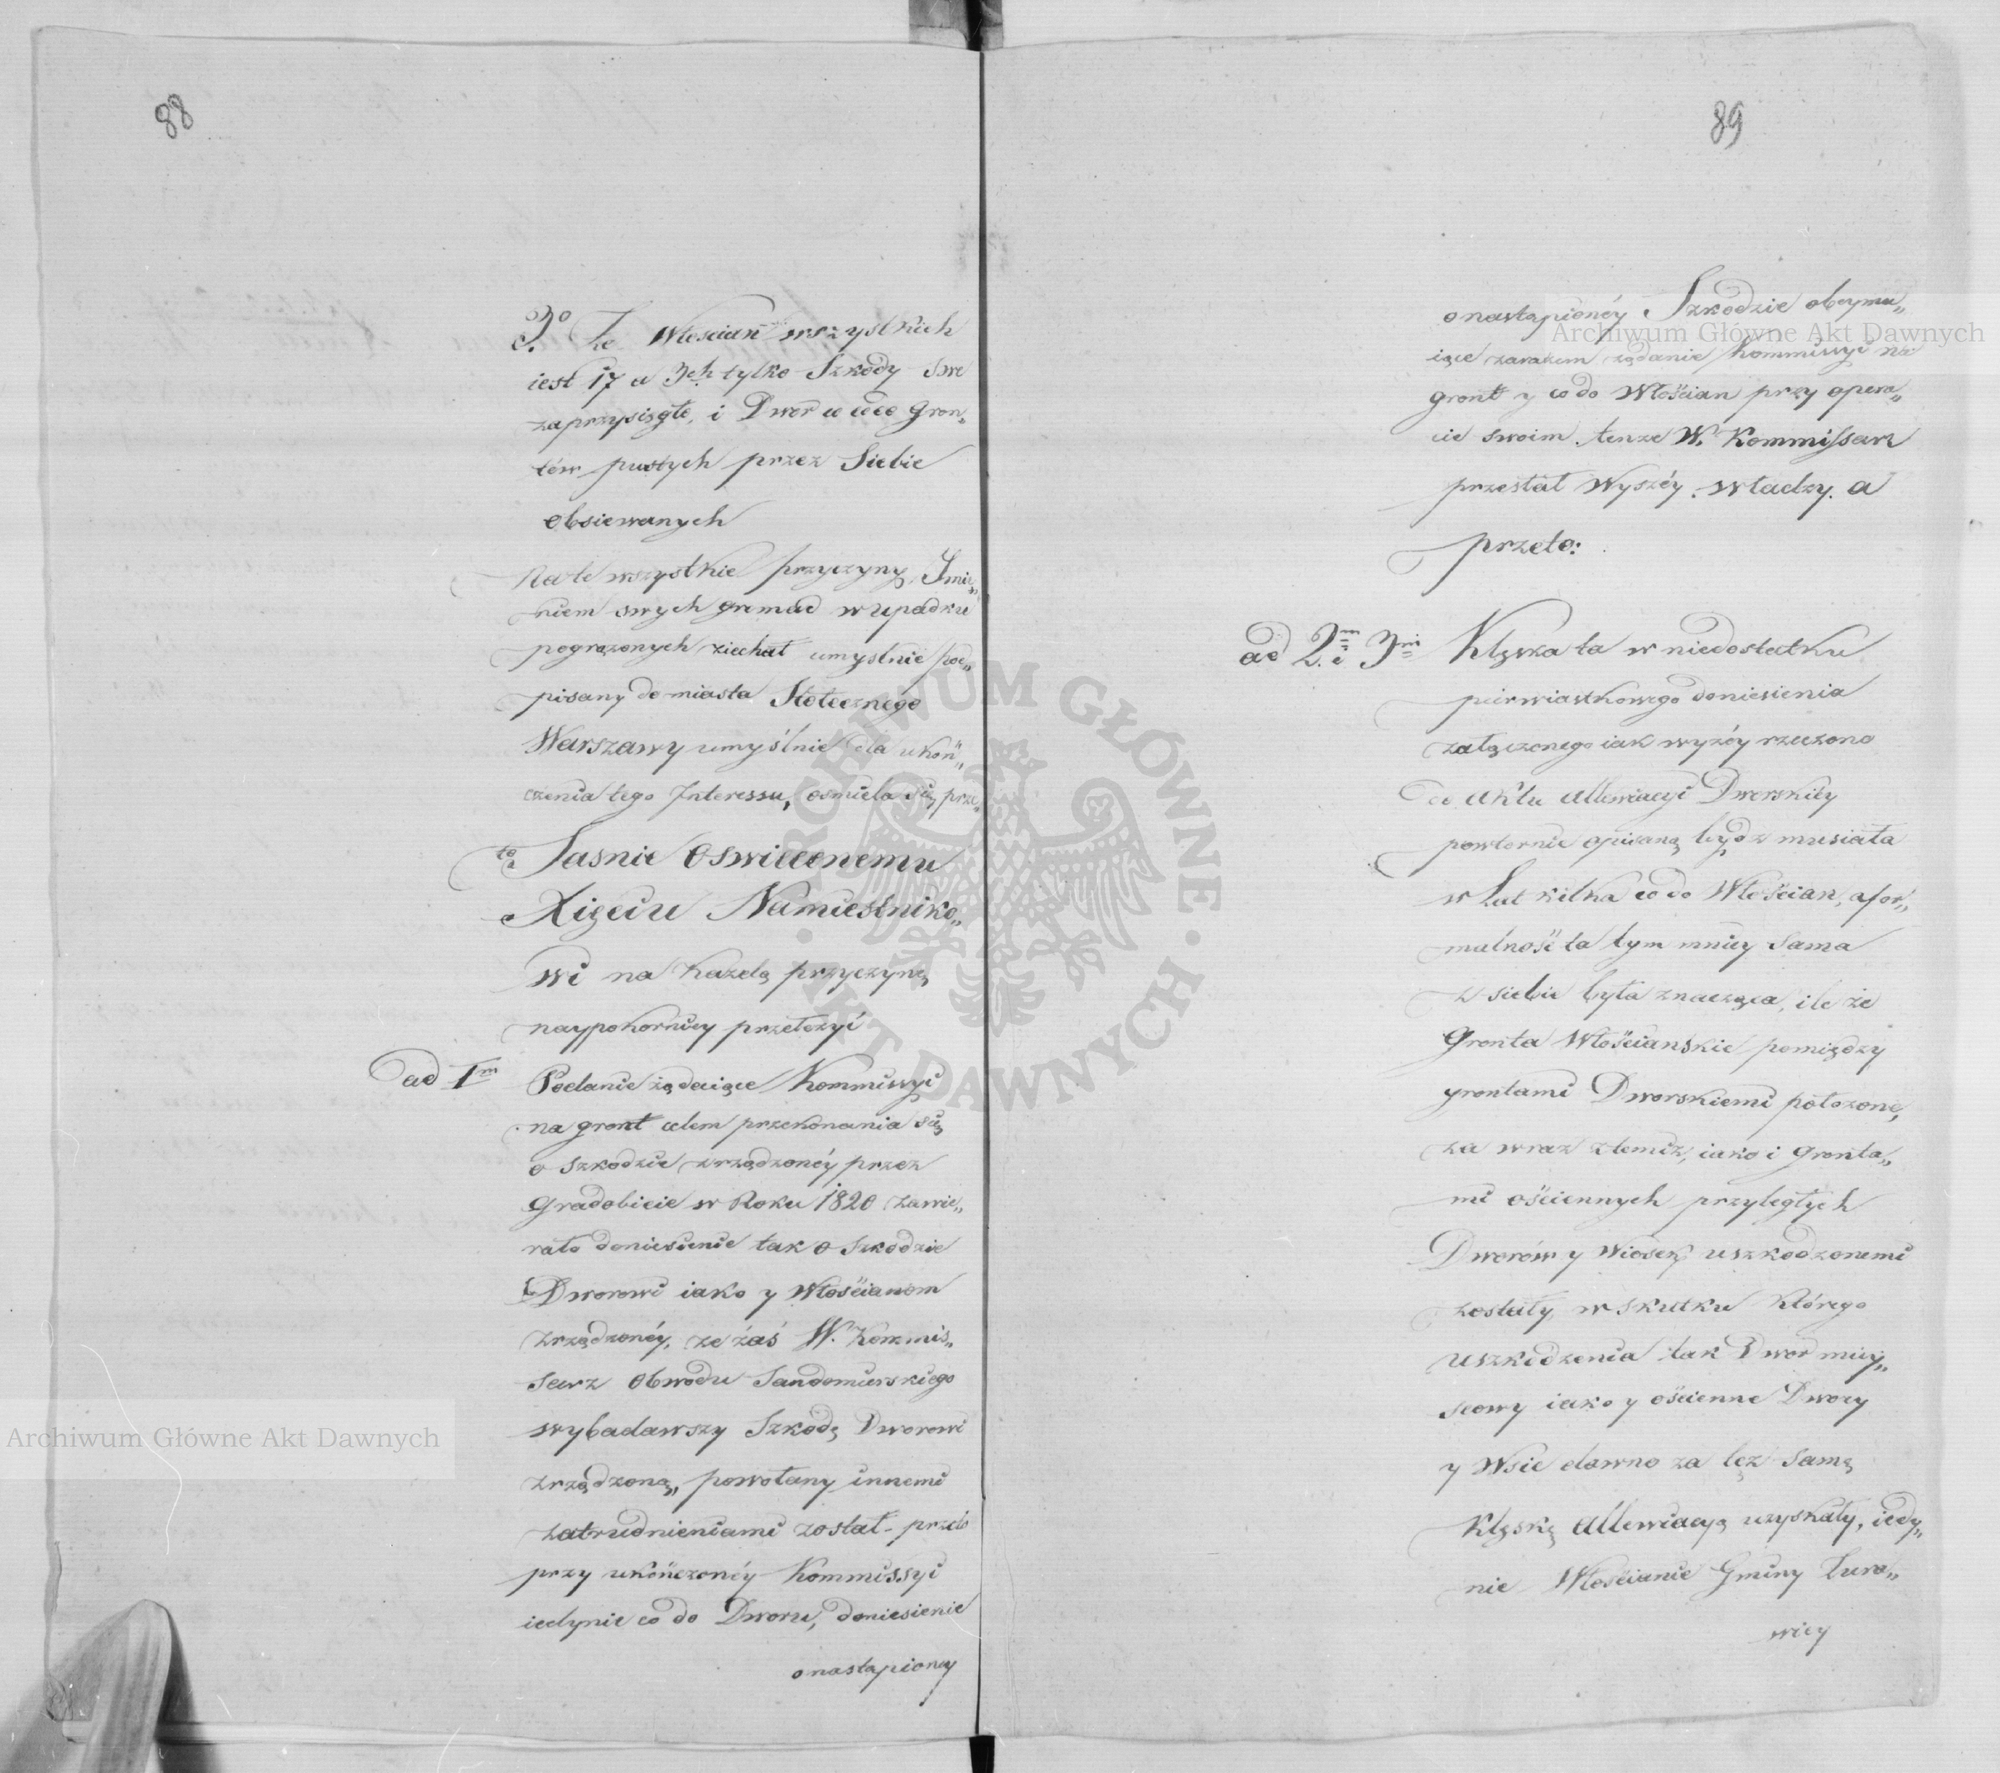 88
3º Że Włoscian wszystkich
iest 17 a 3ch tylko Szkody swe
zaprzysięgło, i Dwor co do Gron„
tów pustych przez Siebie
obsiewanych
Na te wszystkie przyczyny, Imie„
niem swych gromad w upadku
pogrążonych ziechał umyslnie pod„
pisany do miasta Stołecznego
Warszawy umyślnie dla ukoń„
czenia tego Interessu, osmiela się prze„
to Jasnie Oswieconemu
Xięciu Namiestniko„
wi na każdą przyczynę
naypokorniey przełożyć
ad 1m Podanie żądaiące Kommissyi
na gront celem przekonania się
o szkodzie zrządzonéy przez
Gradobicie w Roku 1820 zawie„
rało doniesienie tak o szkodzie
Dworowi iako y Włościanom
zrządzonéy, że zaś W. Kommis„
sarz Obwodu Sandomierskiego
wybadawszy Szkodę Dworowi
zrządzoną, powołany innemi
zatrudnieniami został - przeto
przy ukończonéy Kommissyi
iedynie co do Dworu, doniesienie
o nastąpioney
89
o nastąpionéy Szkodzie obeymu„
iące zarazem żądanie Kommissyi na
gront y co do Włościan przy opera„
cie swoim tenze W. Kommissarz
przesłał wyszéy władzy. a
przeto:
ad 2m i 3m Klęska ta w niedostatku
pierwiastkowego doniesienia
załączonego iak wyżéy rzeczono
do aktu allewiacyi Dworskiéy
powtornie opisaną bydź musiała
w Lat kilka co do Włościan, a for„
malność ta tym mniey sama
z siebie była znacząca, ile że
Gronta Włościanskie pomiędzy
grontami Dworskiemi położone,
za wraz z temiż, iako i gronta„
mi ościennych przyległych
Dworów y Wiosek uszkodzonemi
zostały, w skutku którego
uszkodzenia tak Dwor miey„
scowy iako y ościenne Dwory
y Wsie dawno za tęż samą
klęskę allewiacyą uzyskały, iedy„
nie Włościanie Gminy Turo„
wiey
Archiwum Główne Akt Dawnych
Archiwum Główne Akt Dawnych
ARCHIWUM GŁÓWNE AKT DAWNYCH